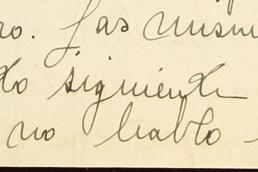 no. Las mism
do siguiente
no hablo -